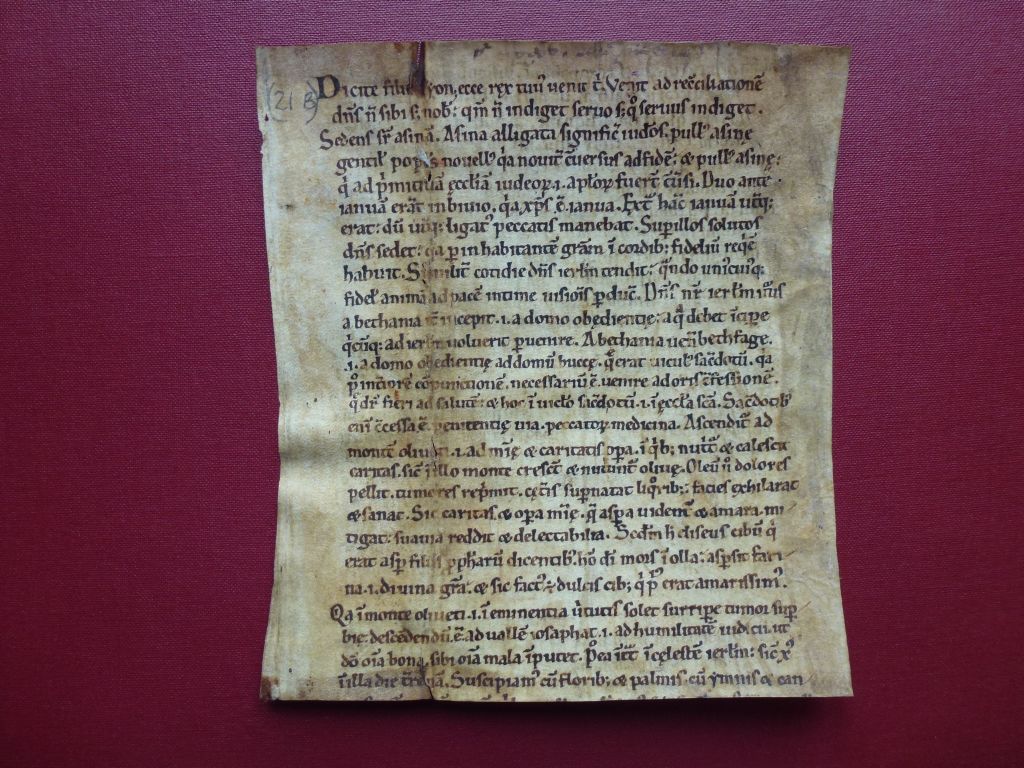 21 B
Dicite filie syon, ecce rex tuus uenit t̄. Venit ad reconciliationē
dn̄s n̄ sibi sꝫ nob̄: qm̄ n̄ indiget seruo sꝫ seruus indiget.
Sedens sr̄ asinā. Asina alligata significat iudeos. pull' asine
gentil' popl's nouell' q̇a nouit ad fidē: & pull' asinę:
q̇ ad p̄mitiuā ęccl'iam iudeoꝝ .i. apl'oꝝ fuert̄ Duo ante
ianuā erāt in biuio, q̇a xp̄s ē ianua. Ext̄ hāc ianuā
erat: dū ligat' peccatis manebat. Sup illos solutos
dn̄s sedet: q̇a ꝑ inhabitantē grām ī cordib; fideliū
habuit. Similit̄ cotidie dn̄s ierl'm tendit: q̇ndo unicuiq;
fidel' animā ad pacē intime uisiōis ꝑduc̄. Dn̄s nr̄ ierl'm
a bethania it̄ incepit .i. a domo obędientię: a q̇ debet īcipe
q̇cūq; ad ierl'm uoluerit ꝑuenire. A bethania uenit bethfage.
.i. a domo obedientię ad domū buccę. quę erat uicul' sac̄dotū. q̇a
p' interiorē cōpunctionē. necessariū ē. uenire ad oris cōfessionē.
q̇ dr̄ fieri ad salutē: & hoc ī uic'lo sac̄dotū .i. ī ęccl'a sc̄a. Sac̄dotib'
enī cōcessa ē. penitentię uia. peccatoꝝ medicina. Ascendit ad
montē oliueti .i. ad mīę & caritatis oꝑa. ī q̇b; nutrit' & calescit
caritas. sic̄ ī illo monte crescunt & nutriunt' oliuę. Oleū n̄ dolores
pellit. tumores rep̄mit. cęt̄is supnatat liq̇orib;: facies exhilarat
& sanat. Sic caritas & oꝑa mīę. q̇ aspa uident' & amara. mi
tigat: suauia reddit & delectabilia. h̄eliseus cibū q̇
erat aspꝰ filiis ꝓphetarū dicentib' hō dī mors ī olla: aspsit fari
na .i. diuina grā. & sic fact' ē dulcis cib; q̇ p' erat amarissim'.
Qa ī monte oliueti .i. ī eminentia uirtutis solet surripe tumor sup
bię: descedendū ē. ad uallē iosaphat .i. ad humilitatē iudicii. ut
dō oīa bona, sibi oīa mala īputet. P'ea itur ī cęlestē ierl'm: sic̄ xp̄c
ī illa die Suscipiam' cū florib; & palmis. cū ymnis & can